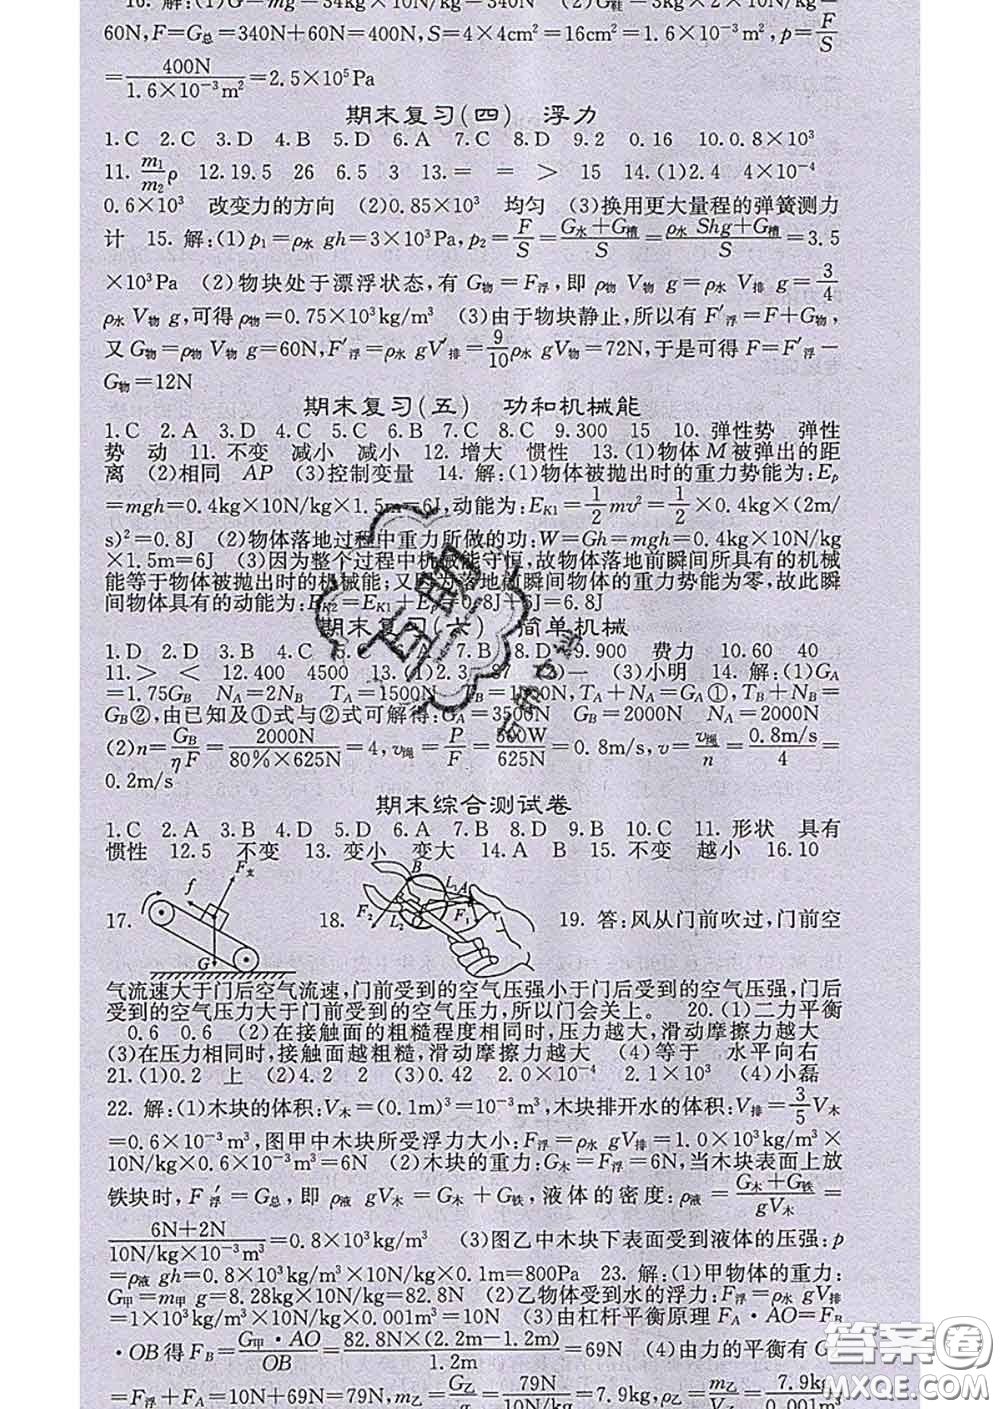 16. 解:(1)G=mg=34kg×10N/kg=340N (2)G鞋=3kg×2×10N/kg=
60N,F=G总=340N+60N=400N,S=4×4cm²=16cm²=1.6×10⁻³m²,p=F/S
=400N/1.6×10⁻³m²=2.5×10⁵Pa
期末复习(四) 浮力
1.C 2.C 3.D 4.B 5.D 6.A 7.C 8.D 9.2 0.16 10.0.8×10³
11. m₁/m₂ρ 12.19.5 26 6.5 3 13.= = > 15 14.(1)2.4 4×10⁻⁴
0.6×10³ 改变力的方向 (2)0.85×10³ 均匀 (3)换用更大量程的弹簧测力
计 15. 解:(1)p₁=ρ水 gh=3×10³Pa,p₂=F/S=G水+G槽/S=ρ水 Shg+G槽/S=3.5
×10³Pa (2)物块处于漂浮状态,有 G物=F浮,即 ρ物 V物 g=ρ水 V排 g=3/4
ρ水 V物 g,可得ρ物=0.75×10³kg/m³ (3)由于物块静止,所以有 F′浮=F+G物,
又G物=ρ物 V物 g=60N,F′浮=ρ水 gV′排=9/10ρ水 gV物=72N,于是可得 F=F′浮−
G物=12N
期末复习(五) 功和机械能
1.C 2.A 3.D 4.C 5.C 6.B 7.C 8.C 9.300 15 10. 弹性势 弹性
势 动 11. 不变 减小 减小 12. 增大 惯性 13.(1)物体M被弹出的距
离 (2)相同 AP (3)控制变量 14. 解:(1)物体被抛出时的重力势能为:Ep
=mgh=0.4kg×10N/kg×1.5m=6J,动能为:EK1=1/2mv²=1/2×0.4kg×(2m/
s)²=0.8J (2)物体落地过程中重力所做的功:W=Gh=mgh=0.4kg×10N/kg
×1.5m=6J (3)因为整个过程中机械能守恒,故物体落地前瞬间所具有的机械
能等于物体被抛出时的机械能;又因为落地前瞬间物体的重力势能为零,故此瞬
间物体具有的动能为:EK2=EK1+Ep=0.8J+6J=6.8J
期末复习(六) 简单机械
1.D 2.D 3.B 4.C 7.B 8.D 9.900 费力 10.60 40
11.> < 12.400 4500 13.(1)2.3 (2)一 (3)小明 14. 解:(1)GA
=1.75GB NA=2NB TA=1500N TB=1000N,TA+NA=GA①,TB+NB=
GB②,由已知及①式与②式可解得:GA=3500N GB=2000N NA=2000N
(2)n=GB/ηF=2000N/80%×625N=4,v绳=P/F=500W/625N=0.8m/s,v=v绳/n=0.8m/s/4=
0.2m/s
期末综合测试卷
1.C 2.A 3.B 4.D 5.D 6.A 7.B 8.D 9.B 10.C 11. 形状 具有
惯性 12.5 不变 13. 变小 变大 14.A B 15. 不变 越小 16.10
17. f F支 G 18. B L₁ A F₂ L₂ F₁ 19. 答:风从门前吹过,门前空
气流速大于门后空气流速,门前受到的空气压强小于门后受到的空气压强,门后
受到的空气压力大于门前受到的空气压力,所以门会关上。 20.(1)二力平衡
0.6 0.6 (2)在接触面的粗糙程度相同时,压力越大,滑动摩擦力越大
(3)在压力相同时,接触面越粗糙,滑动摩擦力越大 (4)等于 水平向右
21.(1)0.2 上 (2)4.2 2 (3)0.42 2.0×10⁻⁴ 2.1×10³ (4)小磊
22. 解:(1)木块的体积:V木=(0.1m)³=10⁻³m³,木块排开水的体积:V排=3/5V木
=0.6×10⁻³m³,图甲中木块所受浮力大小:F浮=ρ水 gV排=1.0×10³kg/m³×
10N/kg×0.6×10⁻³m³=6N (2)木块的重力:G木=F浮=6N,当木块表面上放
铁块时,F′浮=G总,即 ρ液 gV木=G木+G铁,液体的密度:ρ液=G木+G铁/gV木=
6N+2N/10N/kg×10⁻³m³=0.8×10³kg/m³ (3)图乙中木块下表面受到液体的压强:p
=ρ液 gh=0.8×10³kg/m³×10N/kg×0.1m=800Pa 23. 解:(1)甲物体的重力:
G甲=m甲 g=8.28kg×10N/kg=82.8N (2)乙物体受到水的浮力:F浮=ρ水 gV排
=1×10³kg/m³×10N/kg×0.001m³=10N (3)由杠杆平衡原理 FA·AO=FB
·OB得FB=G甲·AO/OB=82.8N×(2.2m−1.2m)/1.2m=69N (4)由力的平衡有G
=F浮+FA=10N+69N=79N,m乙=G乙/g=79N/10N/kg=7.9kg,ρ乙=m乙/V乙=7.9kg/0.001m³
答案圈
MXQE.COM